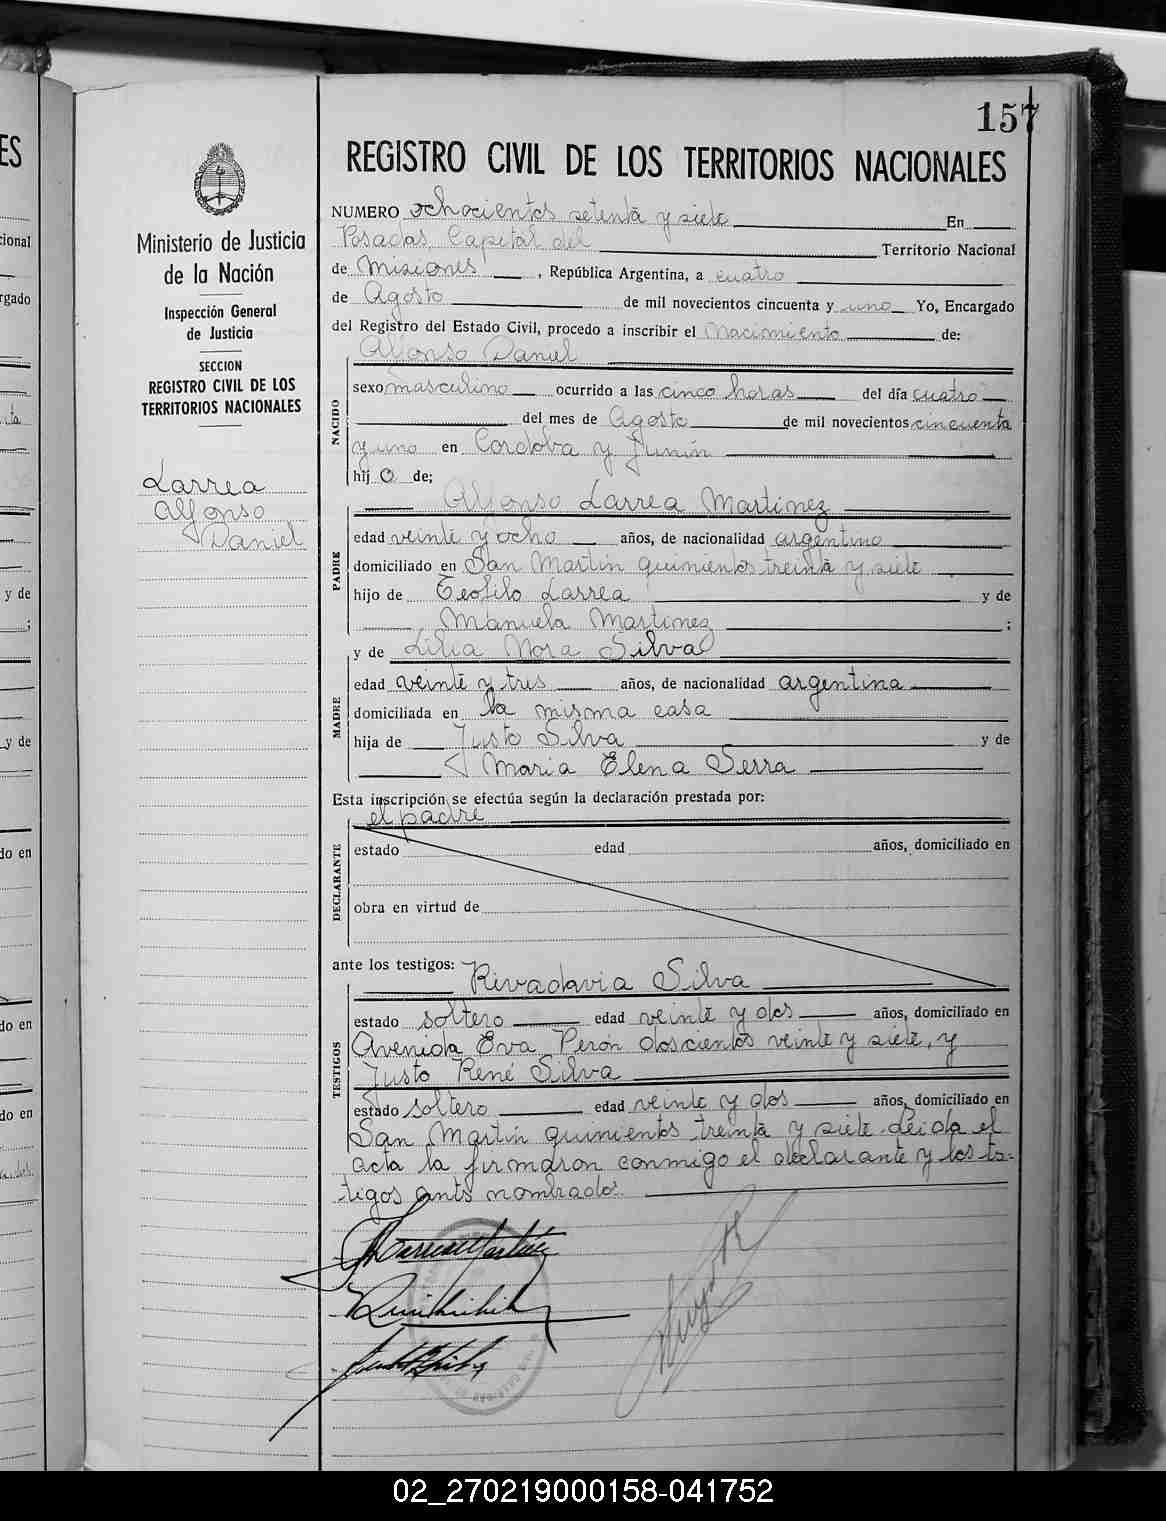 157
REGISTRO CIVIL DE LOS TERRITORIOS NACIONALES
Ministerio de Justicia
de la Nación
Inspección General
de Justicia
SECCION
REGISTRO CIVIL DE LOS
TERRITORIOS NACIONALES
Larrea
Alfonso
Daniel
NUMERO ochocientos setenta y siete En
Posadas, Capital del Territorio Nacional
de Misiones, República Argentina, a cuatro
de Agosto de mil novecientos cincuenta y uno Yo, Encargado
del Registro del Estado Civil, procedo a inscribir el Nacimiento de:
Alfonso Daniel
NACIDO
sexo masculino ocurrido a las cinco horas del día cuatro
del mes de Agosto de mil novecientos cincuenta
y uno en Cordoba y Junín
hij o de;
Alfonso Larrea Martinez
PADRE
edad veinte y ocho años, de nacionalidad argentino
domiciliado en San Martín quinientos treinta y siete
hijo de Teofilo Larrea y de
Manuela Martinez ;
y de Lilia Nora Silva
MADRE
edad veinte y tres años, de nacionalidad argentina
domiciliada en la misma casa
hija de Justo Silva y de
Maria Elena Serra
Esta inscripción se efectúa según la declaración prestada por:
el padre
DECLARANTE
estado edad años, domiciliado en
obra en virtud de
ante los testigos: Rivadavia Silva
TESTIGOS
estado soltero edad veinte y dos años, domiciliado en
Avenida Eva Perón doscientos veinte y siete, y
Justo René Silva
estado soltero edad veinte y dos años, domiciliado en
San Martín quinientos treinta y siete. Leida el
acta la firmaron conmigo el declarante y los tes-
tigos ants nombrados.
ES
cional
rgado
y de
;
y de
do en
do en
do en
02_270219000158-041752